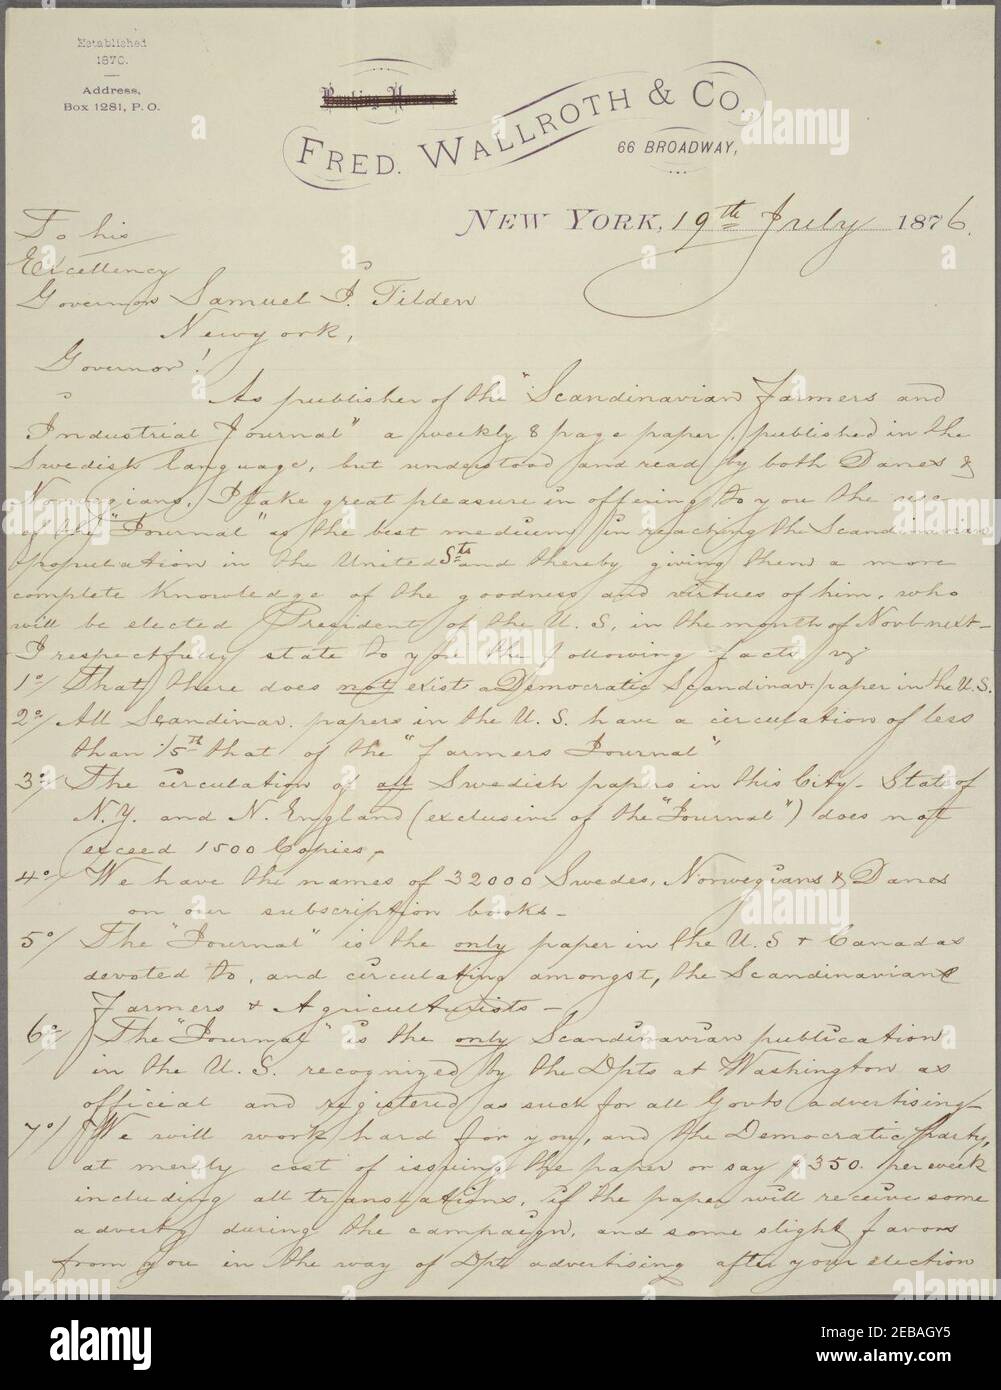 Established
1870.
Address,
Box 1281, P. O.
FRED. WALLROTH & CO.
66 BROADWAY,
NEW YORK, 19th July 1876.
To his
Excellency
Governor Samuel J. Tilden
Newyork,
Governor!
As publisher of the "Scandinavian Farmers and
Industrial Journal" a weekly 8 page paper, published in the
Swedish language, but understood and read by both Danes &
Norwegians, I take great pleasure in offering to you the use
of the "Journal" as the best medium in reaching the Scandinavian
population in the United Sts and thereby giving them a more
complete Knowledge of the goodness and virtues of him, who
will be elected President of the U. S. in the month of Novb next—
I respectfully state to you the following facts viz
1o/ That there does not exist a Democratic Scandinav. paper in the U.S.
2o/ All Scandinav. papers in the U. S. have a circulation of less
than 1/5th that of the "Farmers Journal"
3o/ The circulation of all Swedish papers in this City - State of
N.Y. and N. England (exclusive of the "Journal") does not
exceed 1500 Copies,-
4o/ We have the names of 32000 Swedes, Norwegians & Danes
on our subscription books—
5o/ The "Journal" is the only paper in the U. S + Canada as
devoted to, and circulating amongst, the Scandinavian
Farmers + Agriculturists—
6o/ The "Journal" is the only Scandinavian publication
in the U. S. recognized by the Dpts at Washington as
official and registered as such for all Govts advertising—
7o/ We will work hard for you, and the Democratic party,
at merely cost of issuing the paper or say $350. per week
including all translations, if the paper will receive some
advertg during the campaign, and some slight favors
from you in the way of Dpt advertising after your election
alamy
Image ID: 2EBAGY5
www.alamy.com